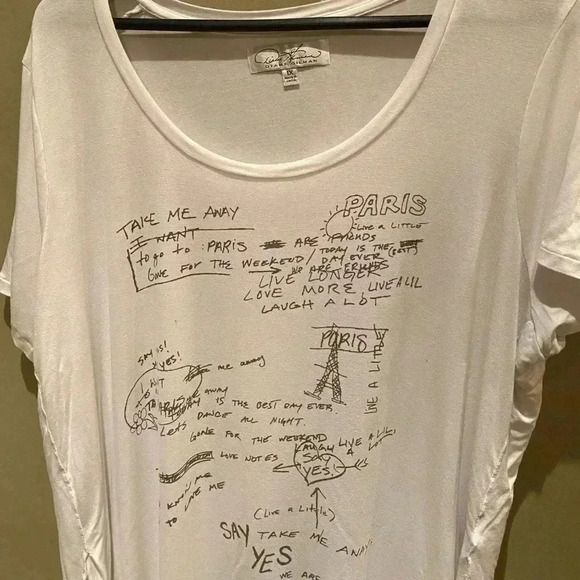 DIANE GILMAN
1X
PARIS
TAKE ME AWAY
Live a Little
I WANT
to go to : PARIS ARE FRIENDS
Gone FOR THE WEEKEND / TODAY IS THE (BEST)
DAY EVER
WE ARE FRIENDS
LIVE LONGER
LOVE MORE LIVE A LIL
LAUGH A LOT
PARIS
LIVE A LITTLE
SAY IS!
YES!
me away
away
IS THE BEST DAY EVER
LETS DANCE ALL NIGHT.
GONE FOR THE WEEKEND
LAUGH LIVE A LIL
SAY A
YES.
LOVE NOTES
KNOW ME
TO LOVE ME
(Live a Little)
SAY TAKE ME AWAY
YES
WE ARE